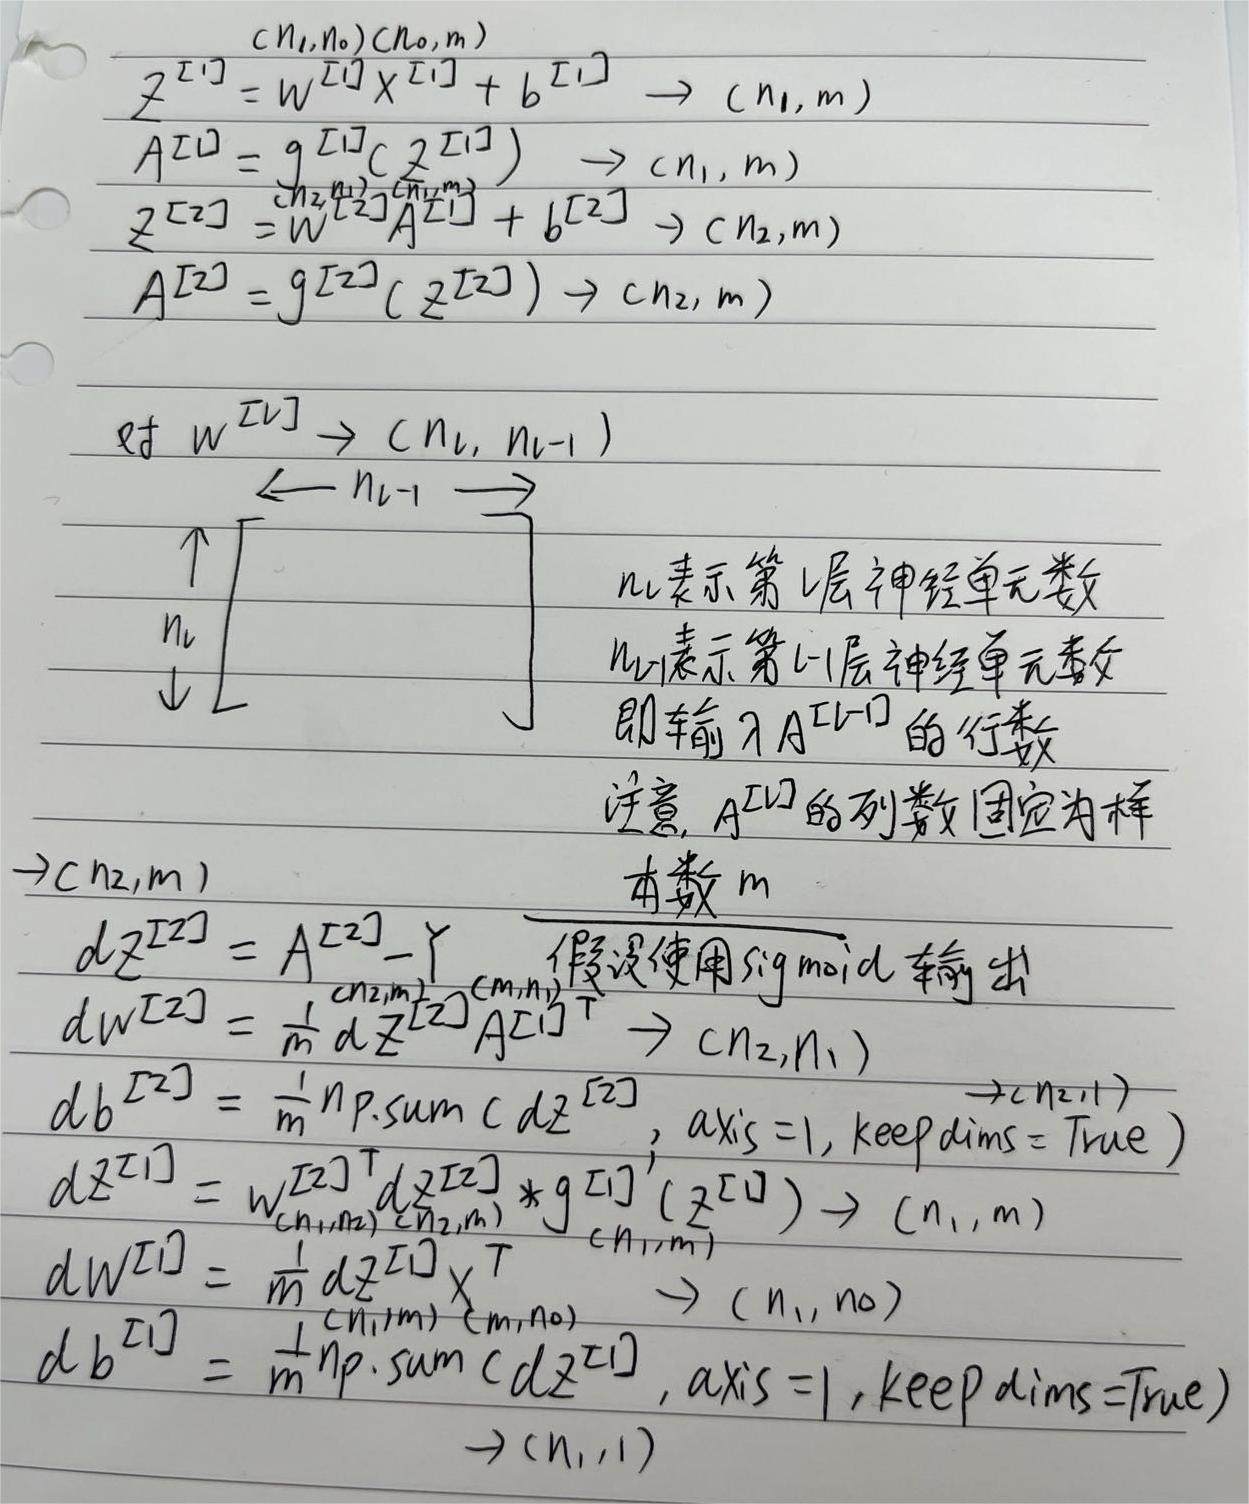 (n₁,n₀)(n₀,m)
Z^[1] = W^[1]X^[1] + b^[1] → (n₁,m)
A^[1] = g^[1](Z^[1]) → (n₁,m)
(n₂,n₁) (n₁,m)
Z^[2] = W^[2]A^[1] + b^[2] → (n₂,m)
A^[2] = g^[2](Z^[2]) → (n₂,m)
对 W^[l] → (n_l, n_l-1)
← n_l-1 →
↑
n_l
↓
n_l表示第l层神经单元数
n_l-1表示第l-1层神经单元数
即输入A^[l-1]的行数
注意,A^[l]的列数固定为样
本数m
→(n₂,m)
dZ^[2] = A^[2]-Y 假设使用sigmoid输出
(n₂,m) (m,n₁)
dW^[2] = 1/m dZ^[2]A^[1]ᵀ → (n₂,n₁)
→(n₂,1)
db^[2] = 1/m np.sum(dZ^[2], axis=1, keepdims=True)
dZ^[1] = W^[2]ᵀdZ^[2] * g^[1]'(Z^[1]) → (n₁,m)
(n₁,n₂) (n₂,m) (n₁,m)
dW^[1] = 1/m dZ^[1]Xᵀ → (n₁,n₀)
(n₁,m) (m,n₀)
db^[1] = 1/m np.sum(dZ^[1], axis=1, keepdims=True)
→(n₁,1)